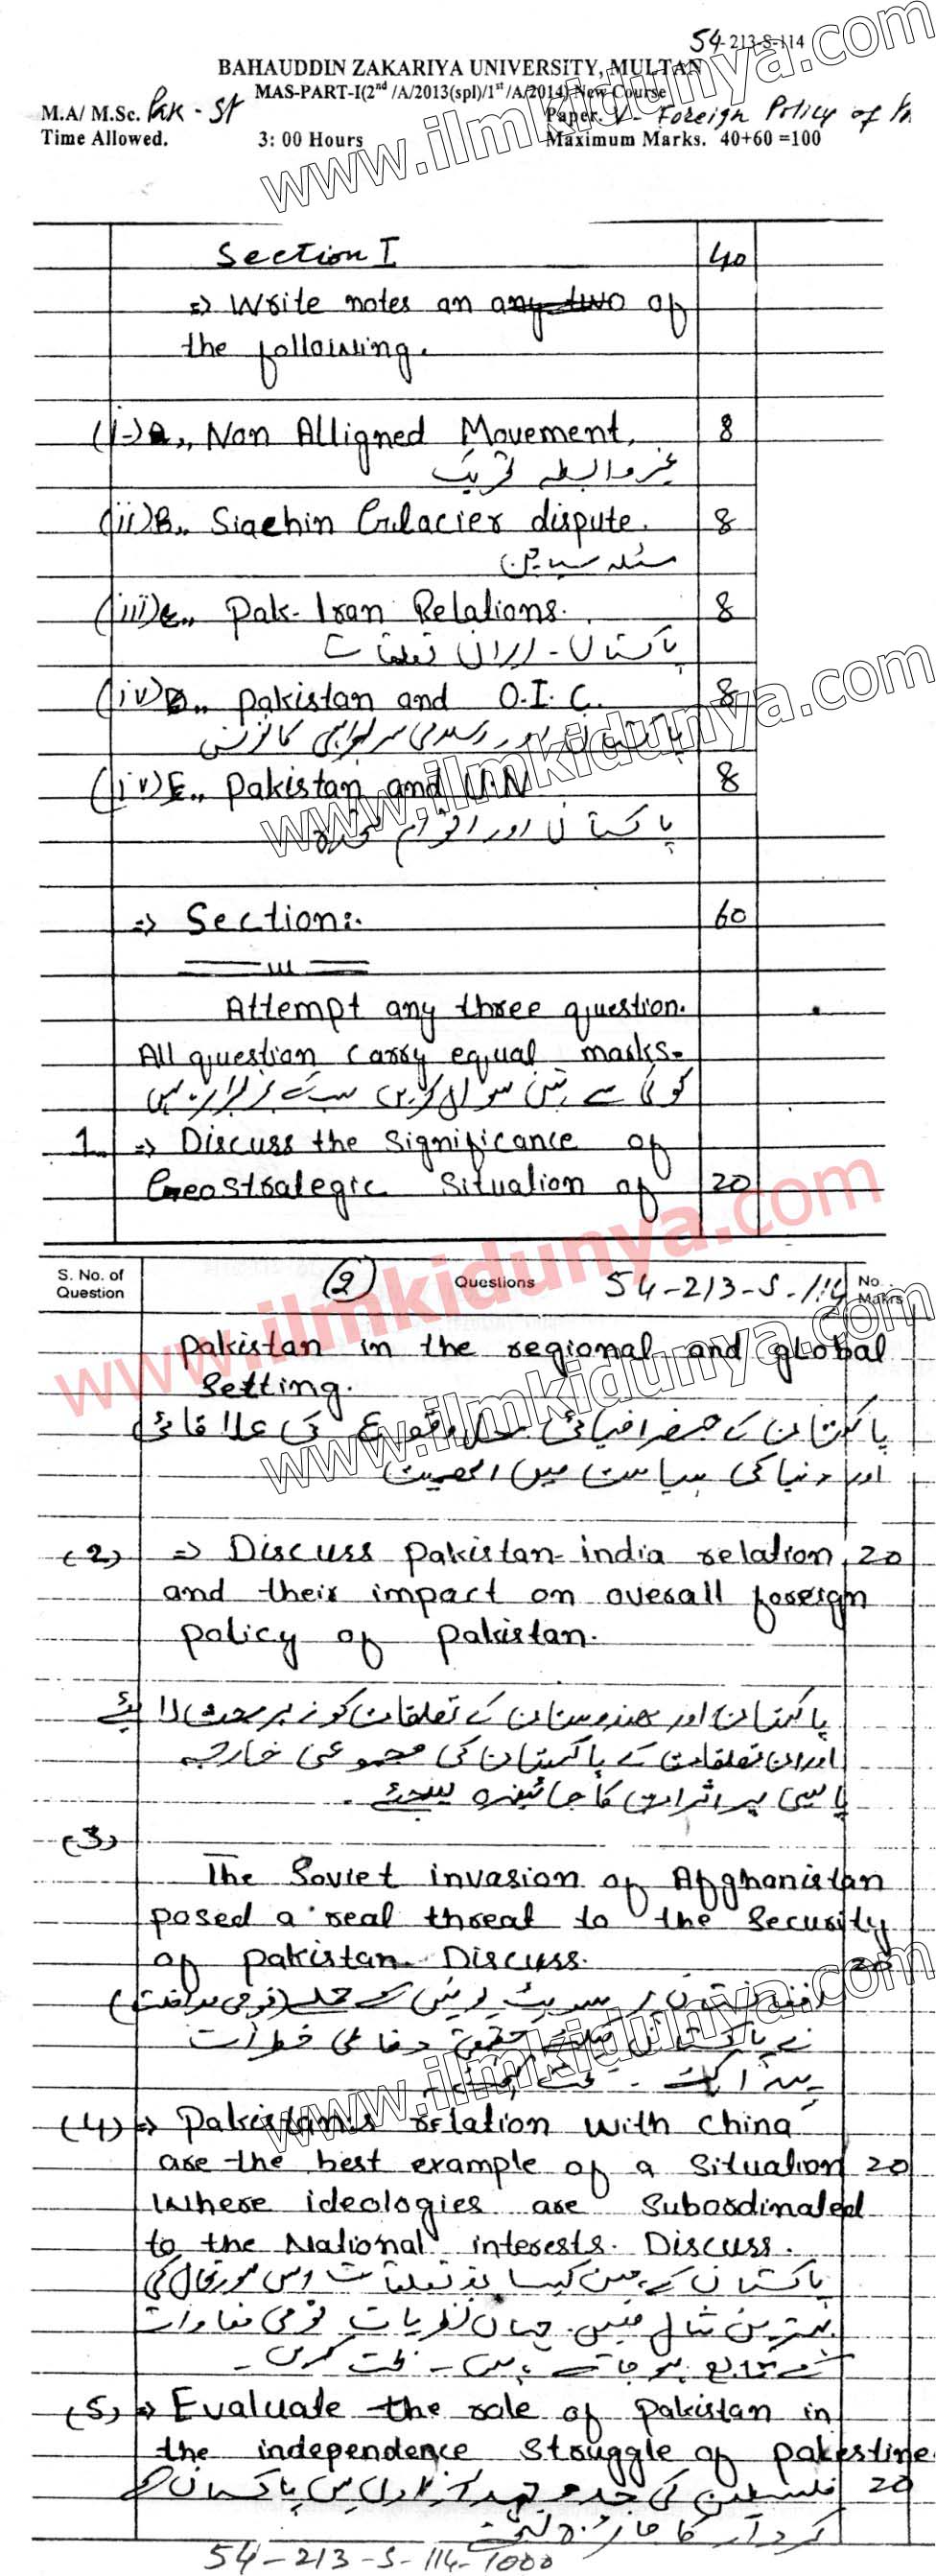 54-213-S-114
BAHAUDDIN ZAKARIYA UNIVERSITY, MULTAN
MAS-PART-I(2nd /A/2013(spl)/1st /A/2014) New Course
M.A/ M.Sc. Pak - St Paper. V- Foreign Policy of
Time Allowed. 3: 00 Hours Maximum Marks. 40+60 =100
www.ilmkidunya.com
Section I 40
=> Write notes on any two of
the following.
(i-) A,, Non Alligned Movement. 8
غیر وابسطہ تحریک
(ii) B,, Siachin Gilacier dispute. 8
مسئلہ سیاچین
(iii) C,, Pak-Iran Relations. 8
پاکستان - ایران تعلقات
(iv) D,, Pakistan and O.I.C. 8
پاکستان اور اسلامی سربراہی کانفرنس
www.ilmkidunya.com
(iv) E,, Pakistan and U.N 8
پاکستان اور اقوام متحدہ
=> Section:. 60
Attempt any three question.
All question carry equal marks.
کوئی سے تین سوال کریں سب کے نمبر برابر ہیں
1. => Discuss the Significance of
Geostrategic Situation of 20
www.ilmkidunya.com
S. No. of Question (2) Questions 54-213-S-114 No. Makrs
Pakistan in the regional and global
Setting.
www.ilmkidunya.com
پاکستان کے جغرافیائی محل وقوع کی علاقائی
اور دنیا کی سیاست میں اھمیت
(2) => Discuss Pakistan-india relation, 20
and their impact on overall foreign
policy of Pakistan.
پاکستان اور ھندوستان کے تعلقات کو زیر بحث لائیے
اور ان تعلقات کے پاکستان کی مجموعی خارجہ
پالیسی پر اثرات کا جائیزہ لیجئے .
(3)
The Soviet invasion of Afghanistan
posed a real threat to the Security
of Pakistan. Discuss. 20
افغانستان پر سویٹ یونین کے حملے (فوجی مداخلت)
نے پاکستان کیلئے حقیقی دفاعی خطرات
پیدا کئے - بحث کیجئے -
www.ilmkidunya.com
(4) => Pakistan's relation with China
are the best example of a Situation 20
Where ideologies are Subordinated
to the National interests. Discuss.
پاکستان کے چین کیساتھ تعلقات اس صورتحال کی
بہترین مثال ہیں. جہاں نظریات قومی مفادات
کے تابع ہو جاتے ہیں - بحث کریں -
(5) => Evaluate the role of Pakistan in
the independence Struggle of Pakestine
فلسطین کی جدوجہد آزادی میں پاکستان کے 20
کردار کا جائزہ لیجئے
54-213-S-114-1000